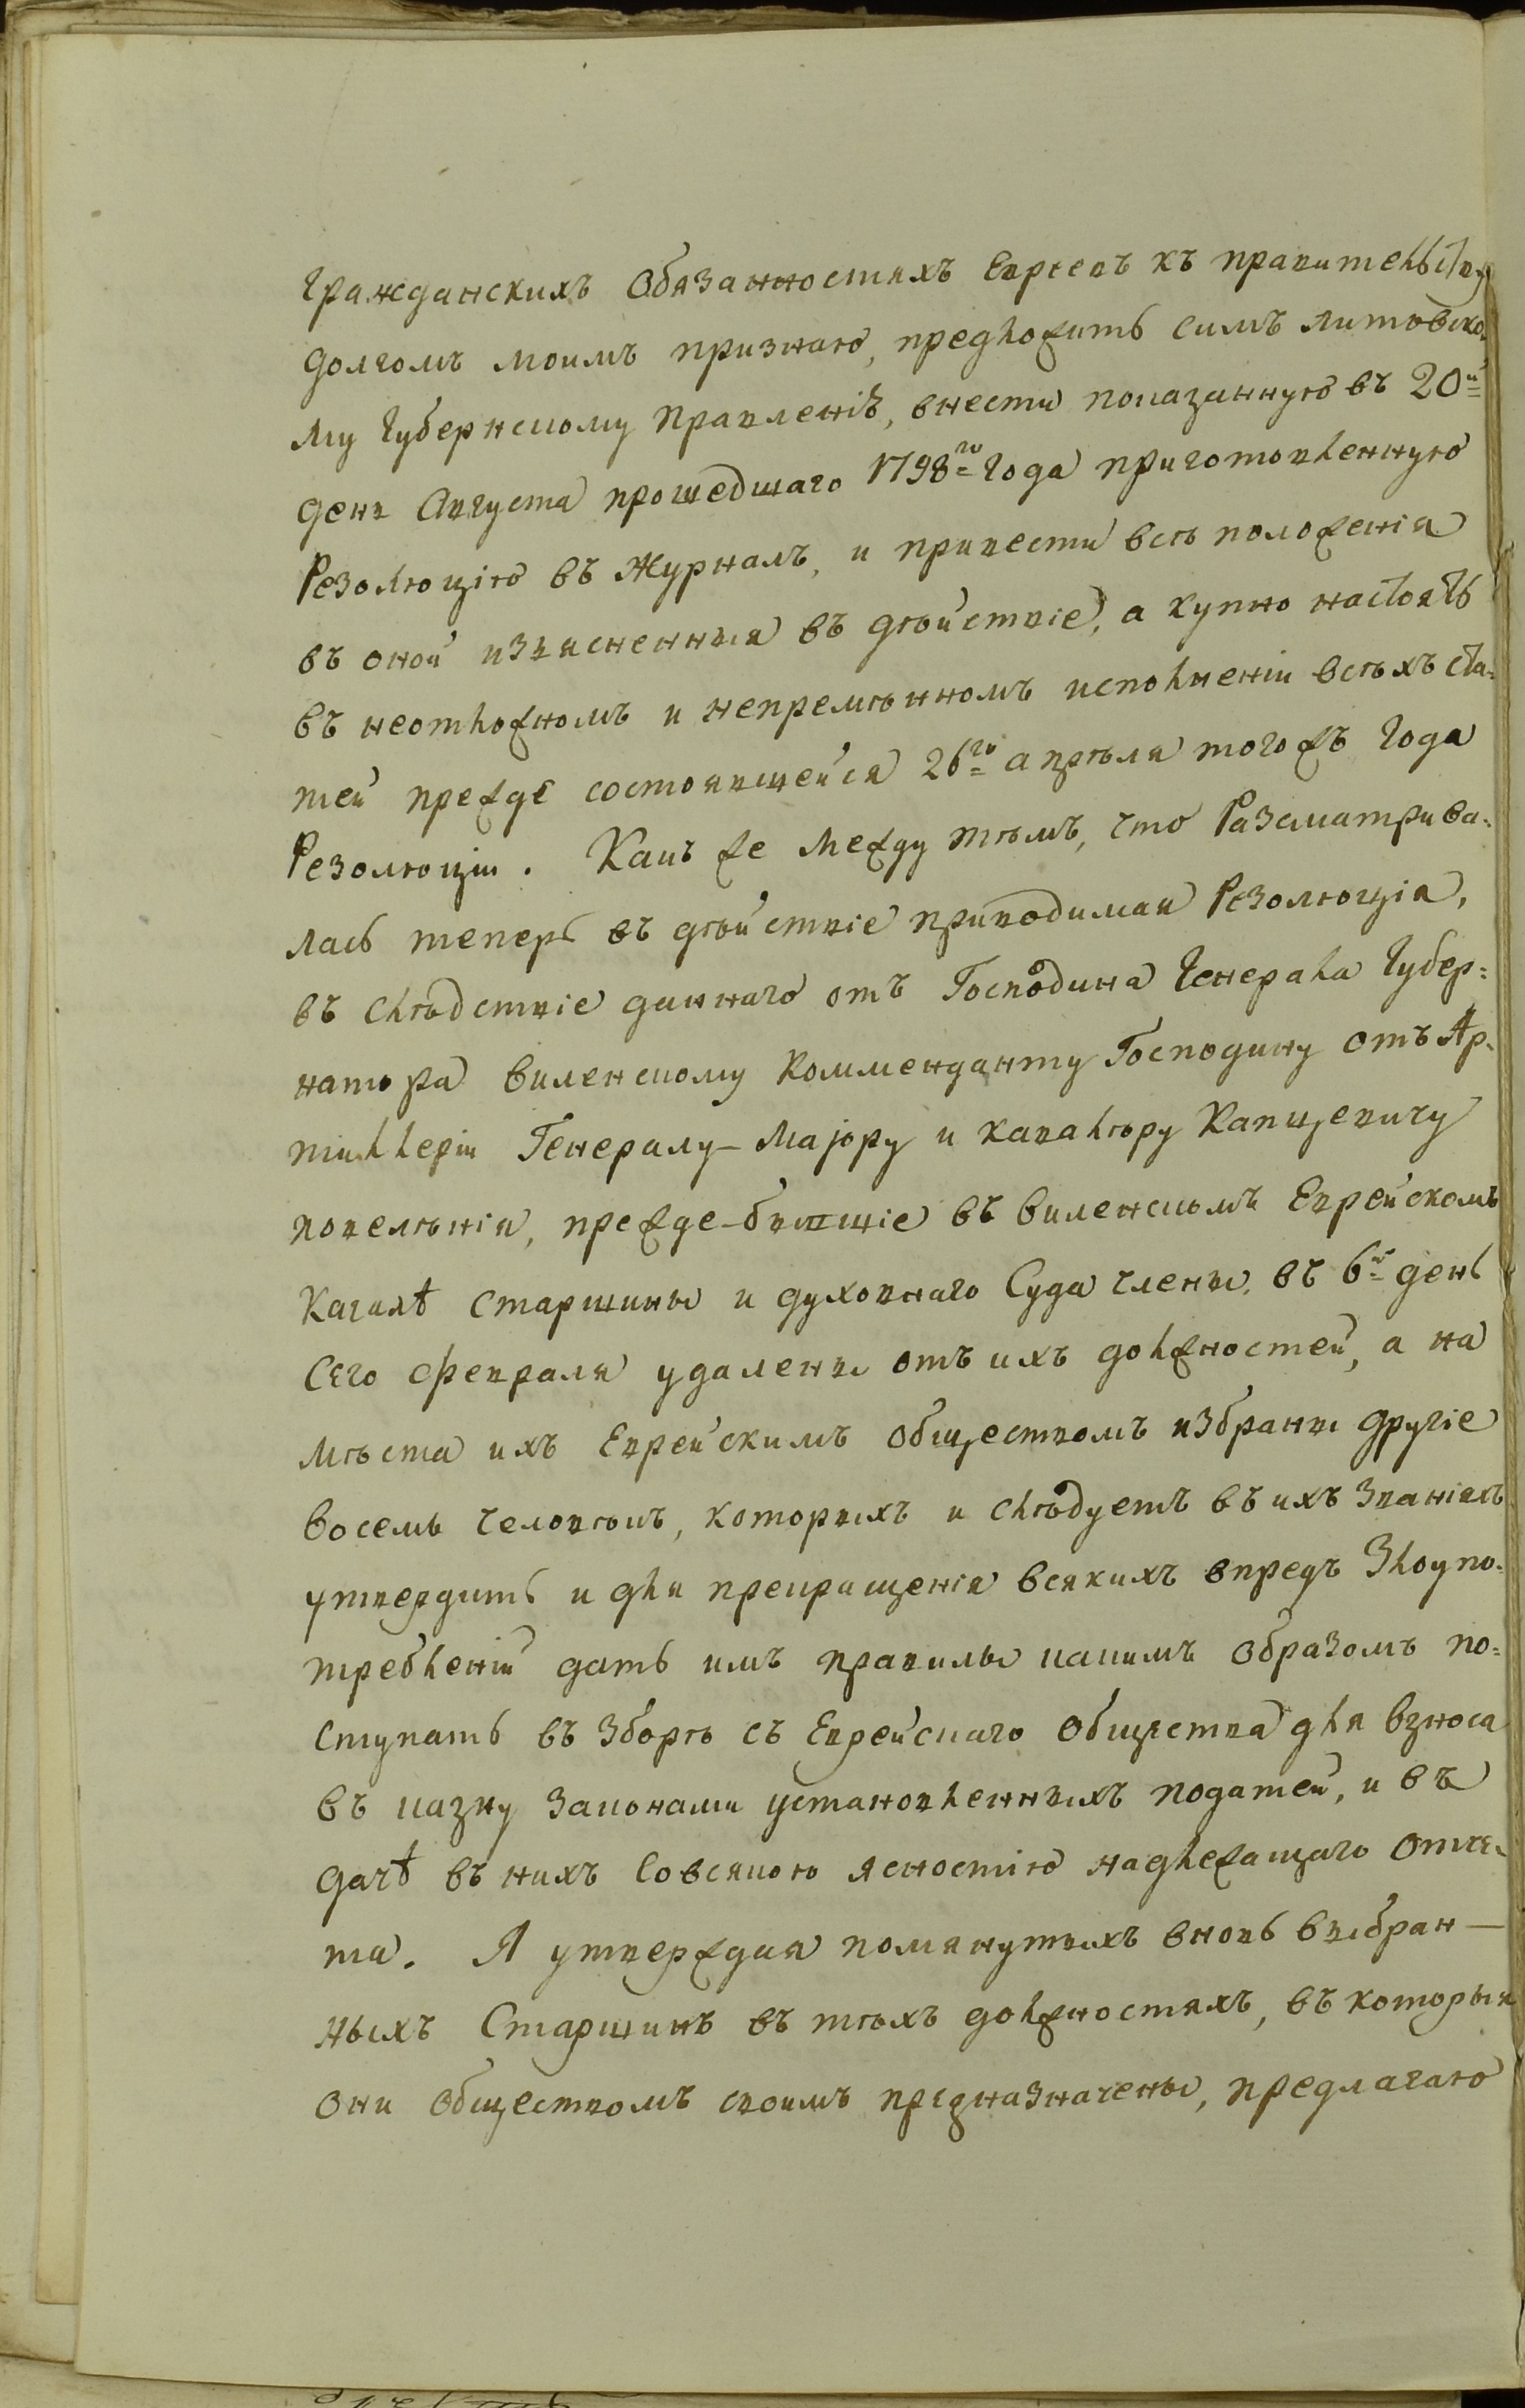 гражданскихъ Обязанностяхъ Евреевъ къ правительству
долгомъ моимъ признаю, предложить симъ литовско-
му Губернскому Правленію, внести показанную въ 20й
день Августа прошедшаго 1798го года приготовленную
Резолюцію въ Журналъ, и привести всѣ положенія
въ оной изъясненныя въ дѣйствіе, а купно настоять
въ неотложномъ и непремѣнномъ исполненіи всѣхъ ста-
тей прежде состоявшейся 26го апрѣля тогожъ года
Резолюціи. Какъ же между тѣмъ, что Разсматрива-
лась теперь въ дѣйствіе приводимая Резолюція,
въ слѣдствіе даннаго отъ Господина Генерала Губер-
натора виленскому Комменданту Господину отъ Ар-
тиллеріи Генералу-Маіору и кавалѣру Капцевичу
повелѣнія, прежде-бывшіе въ виленскомъ Еврейскомъ
Кагалѣ старшины и духовнаго Суда члены, въ 6й день
Сего февраля удалены отъ ихъ должностей, а на
мѣста ихъ Еврейскимъ обществомъ избраны другіе
восемь человѣкъ, которыхъ и слѣдуетъ въ ихъ званіяхъ
утвердить и для прекращенія всякихъ впредъ Злоупо-
требленій дать имъ правилы какимъ образомъ по-
ступать въ Зборѣ съ Еврейскаго Общества для взноса
въ казну законами установленныхъ податей, и въ
дачѣ въ нихъ Совсякою ясностію надлежащаго отче-
та. Я утверждая помянутыхъ вновь выбран-
ныхъ Старшинъ въ тѣхъ должностяхъ, въ которыя
они обществомъ своимъ предназначены, предлагаю